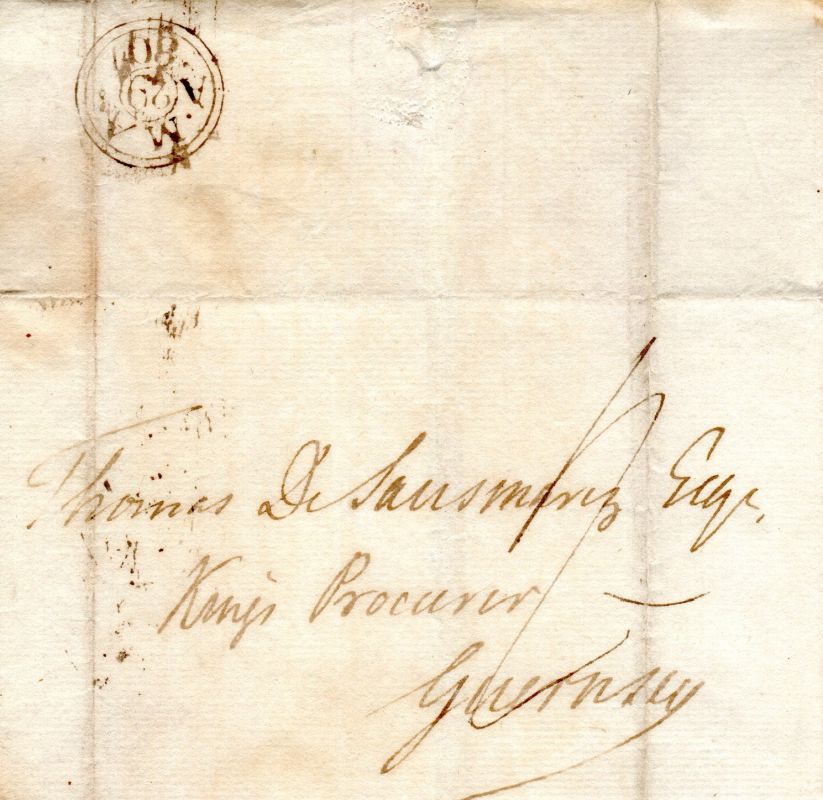 29
Thomas De Sausmarez Esqr.
Kings Procurer
Guernsey